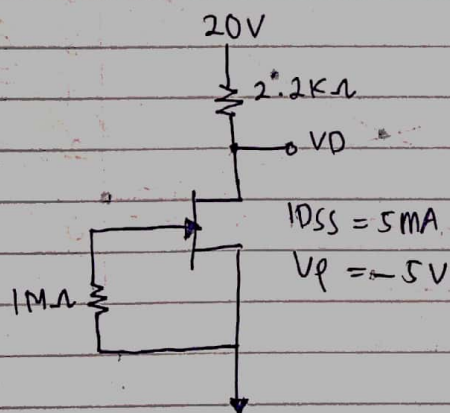 20V
2.2KΩ
VD
IDSS = 5mA
Vp = -5V
1MΩ